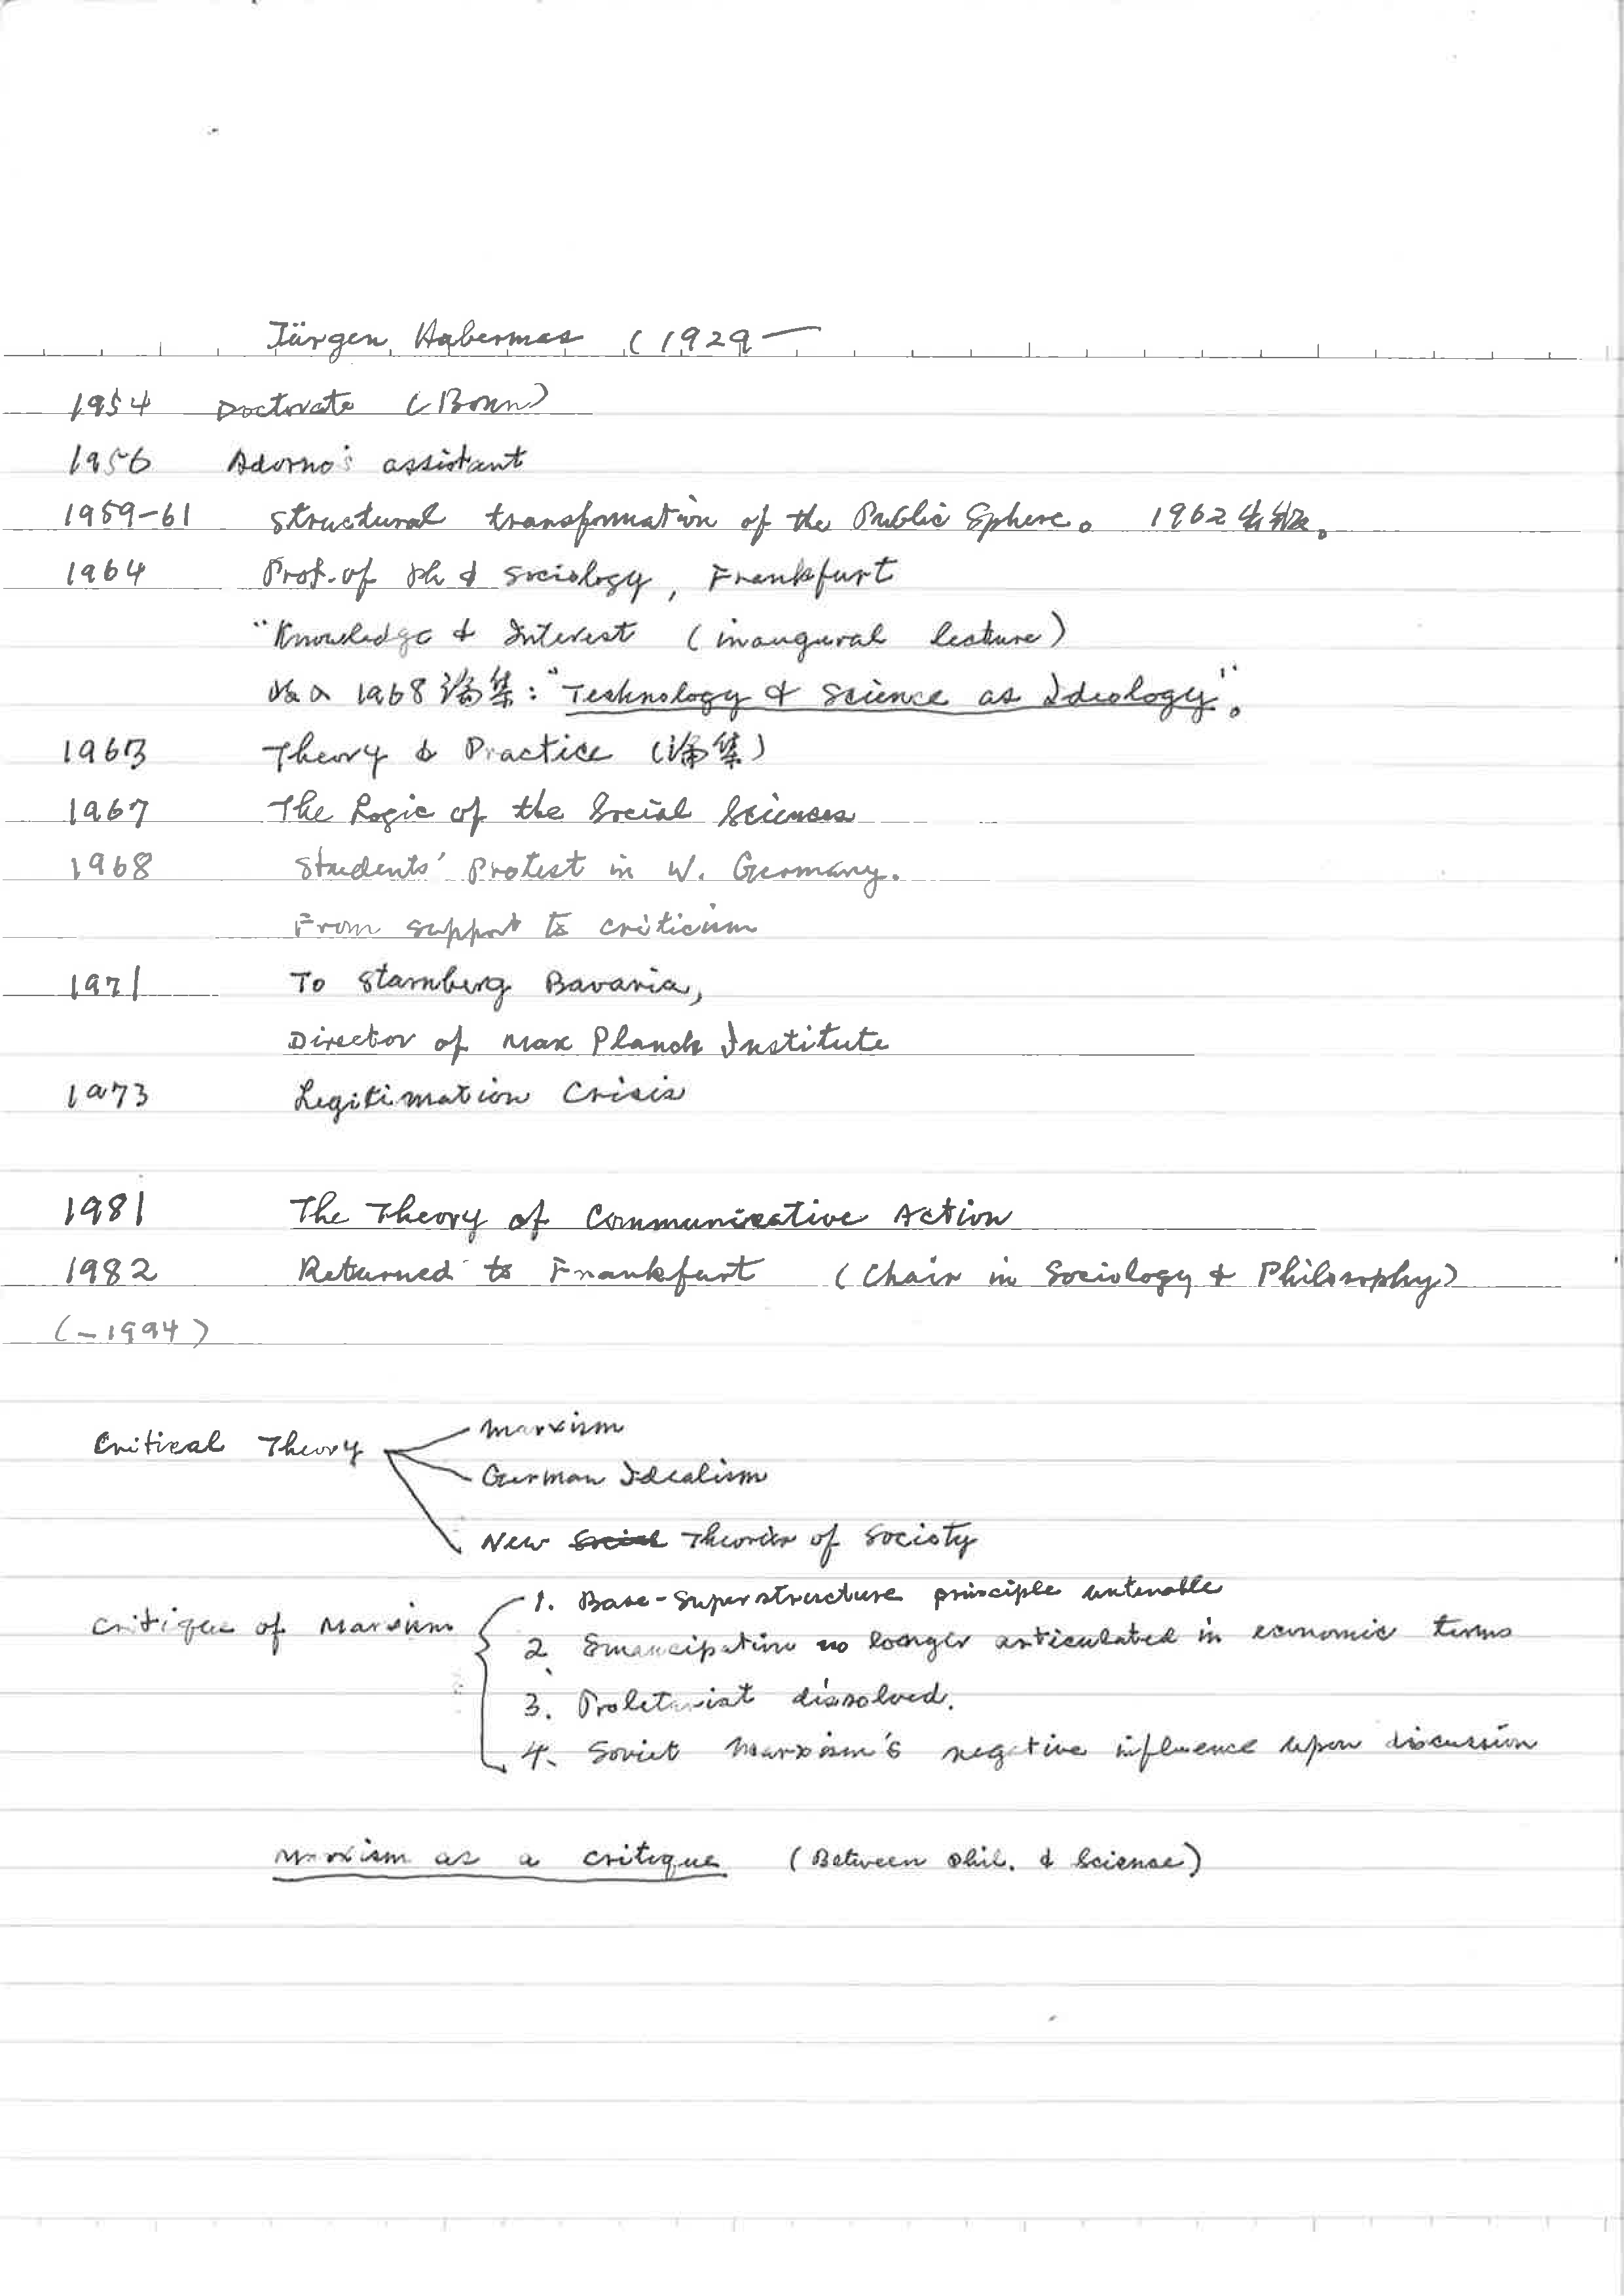 Jürgen Habermas (1929 —
1954 Doctorate (Bonn)
1956 Adorno's assistant
1959-61 Structural transformation of the Public Sphere。 1962出版。
1964 Prof. of Ph & Sociology, Frankfurt
"Knowledge & Interest (inaugural lecture)
收入1968論集："Technology & Science as Ideology"。
1963 Theory & Practice (論集)
1967 The Logic of the Social Sciences
1968 Students' Protest in W. Germany.
From support to criticism
1971 To Starnberg Bavaria,
Director of Max Planck Institute
1973 Legitimation Crisis
1981 The Theory of Communicative Action
1982 Returned to Frankfurt (Chair in Sociology & Philosophy)
(-1994)
Critical Theory
Marxism
German Idealism
New Social Theories of Society
Critique of Marxism
1. Base-Superstructure principle untenable
2. Emancipation no longer articulated in economic terms
3. Proletariat dissolved.
4. Soviet Marxism's negative influence upon discussion
Marxism as a critique (Between Phil. & Science)